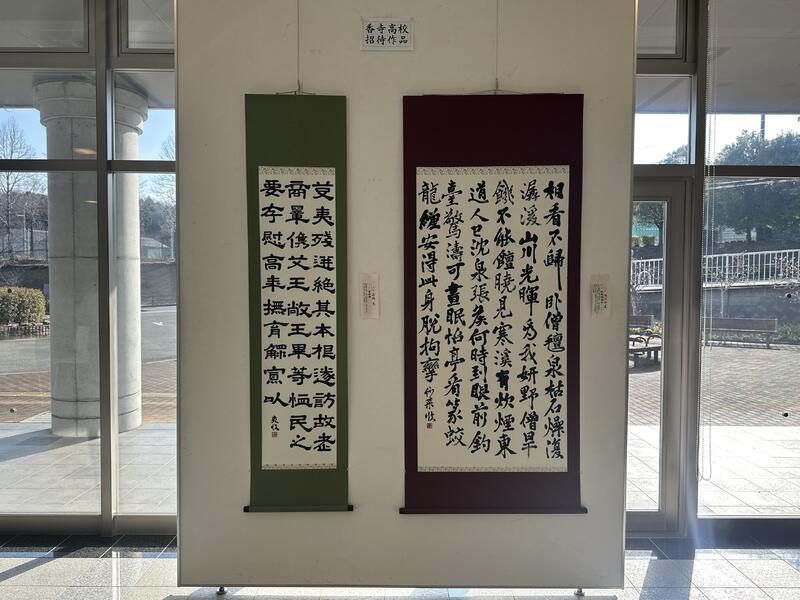 香寺高校
招待作品
相看不歸臥僧氈泉枯石燥復
潺湲山川光暉為我妍野僧旱
饑不能饘曉見寒溪有炊煙東
道人已沈泉張侯何時到眼前釣
臺驚濤可晝眠怡亭看篆蛟
龍纏安得此身脫拘攣
芟夷殘迸絶其本根遂訪故老
商量儁艾王敞王畢等恤民之
要存慰高年撫育鰥寡以